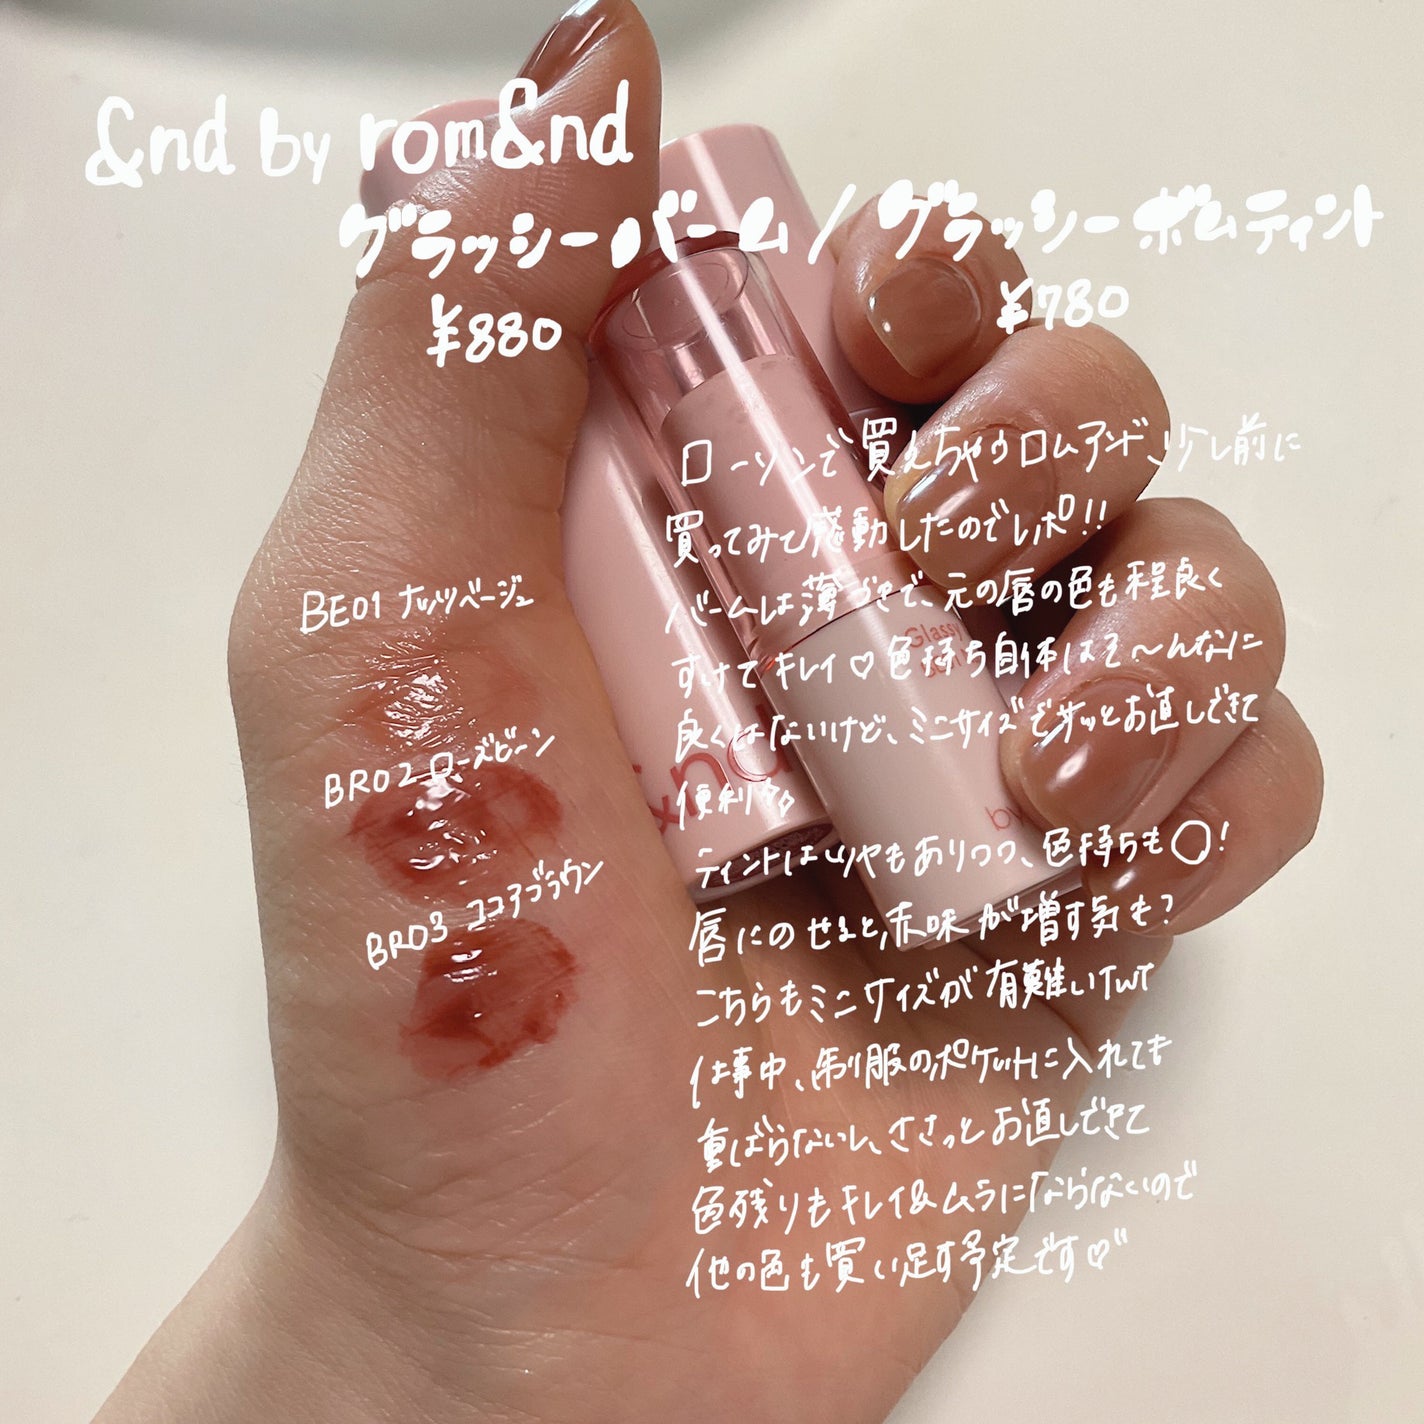 &nd by rom&nd
グラッシーバーム / グラッシーボムティント
¥880
¥780
ローソンで買えちゃうロムアンド、少し前に
買ってみて感動したのでレポ!!
バームは薄づきで、元の唇の色も程良く
すけてキレイ♡色持ち自体はそ〜んなに
良くはないけど、ミニサイズでサッとお直しできて
便利
ティントはツヤもありつつ、色持ちも○!
唇にのせると赤味が増す気も?
こちらもミニサイズが有難いTwT
仕事中、制服のポケットに入れても
重ばらないし、ささっとお直しできて
色残りもキレイ&ムラにならないので
他の色も買い足す予定です♡
BE01 ナッツベージュ
BR02 ローズビーン
BR03 ココアブラウン
Glassy
&nd
by